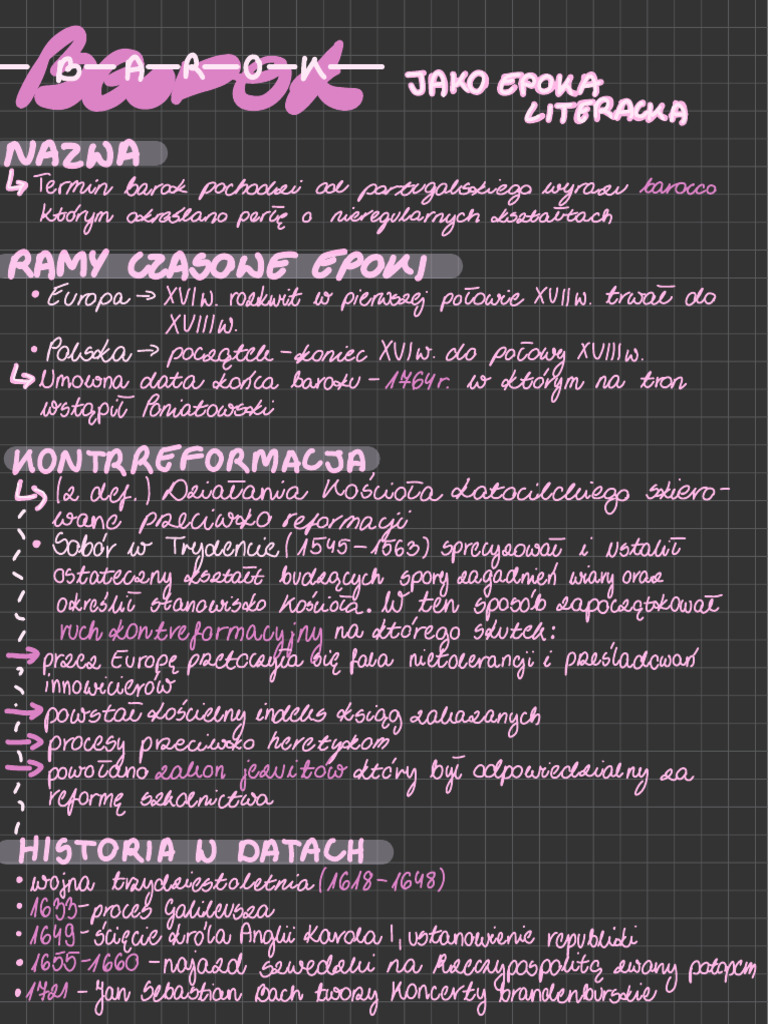 BAROK
JAKO EPOKA
LITERACKA
NAZWA
↳ Termin barok pochodzi od portugalskiego wyrazu barocco
którym określano perłę o nieregularnych kształtach
RAMY CZASOWE EPOKI
• Europa → XVI w. rozkwit w pierwszej połowie XVII w. trwał do
XVIII w.
• Polska → początek - koniec XVI w. do połowy XVIII w.
↳ Umowna data końca baroku - 1764 r. w którym na tron
wstąpił Poniatowski
KONTRREFORMACJA
↳ (z def.) Działania Kościoła katocilckiego skiero-
wane przeciwko reformacji
• Sobór w Trydencie (1545-1563) sprecyzował i ustalił
ostateczny kształt budzących spory zagadnień wiary oraz
określił stanowisko Kościoła. W ten sposób zapoczątkował
ruch kontreformacyjny na którego skutek:
→ przez Europę przetoczyła się fala nietolerancji i prześladowań
innowierców
→ powstał kościelny indeks ksiąg zakazanych
→ procesy przeciwko heretykom
→ powołano zakon jezuitów który był odpowiedzialny za
reformę szkolnictwa
HISTORIA W DATACH
• wojna trzydziestoletnia (1618-1648)
• 1633-proces Galileusza
• 1649-ścięcie króla Anglii Karola I, ustanowienie republiki
• 1655-1660 -najazd szwedzki na Rzeczypospolitą zwany potopem
• 1721 - Jan Sebastian Bach tworzy Koncerty brandenburskie